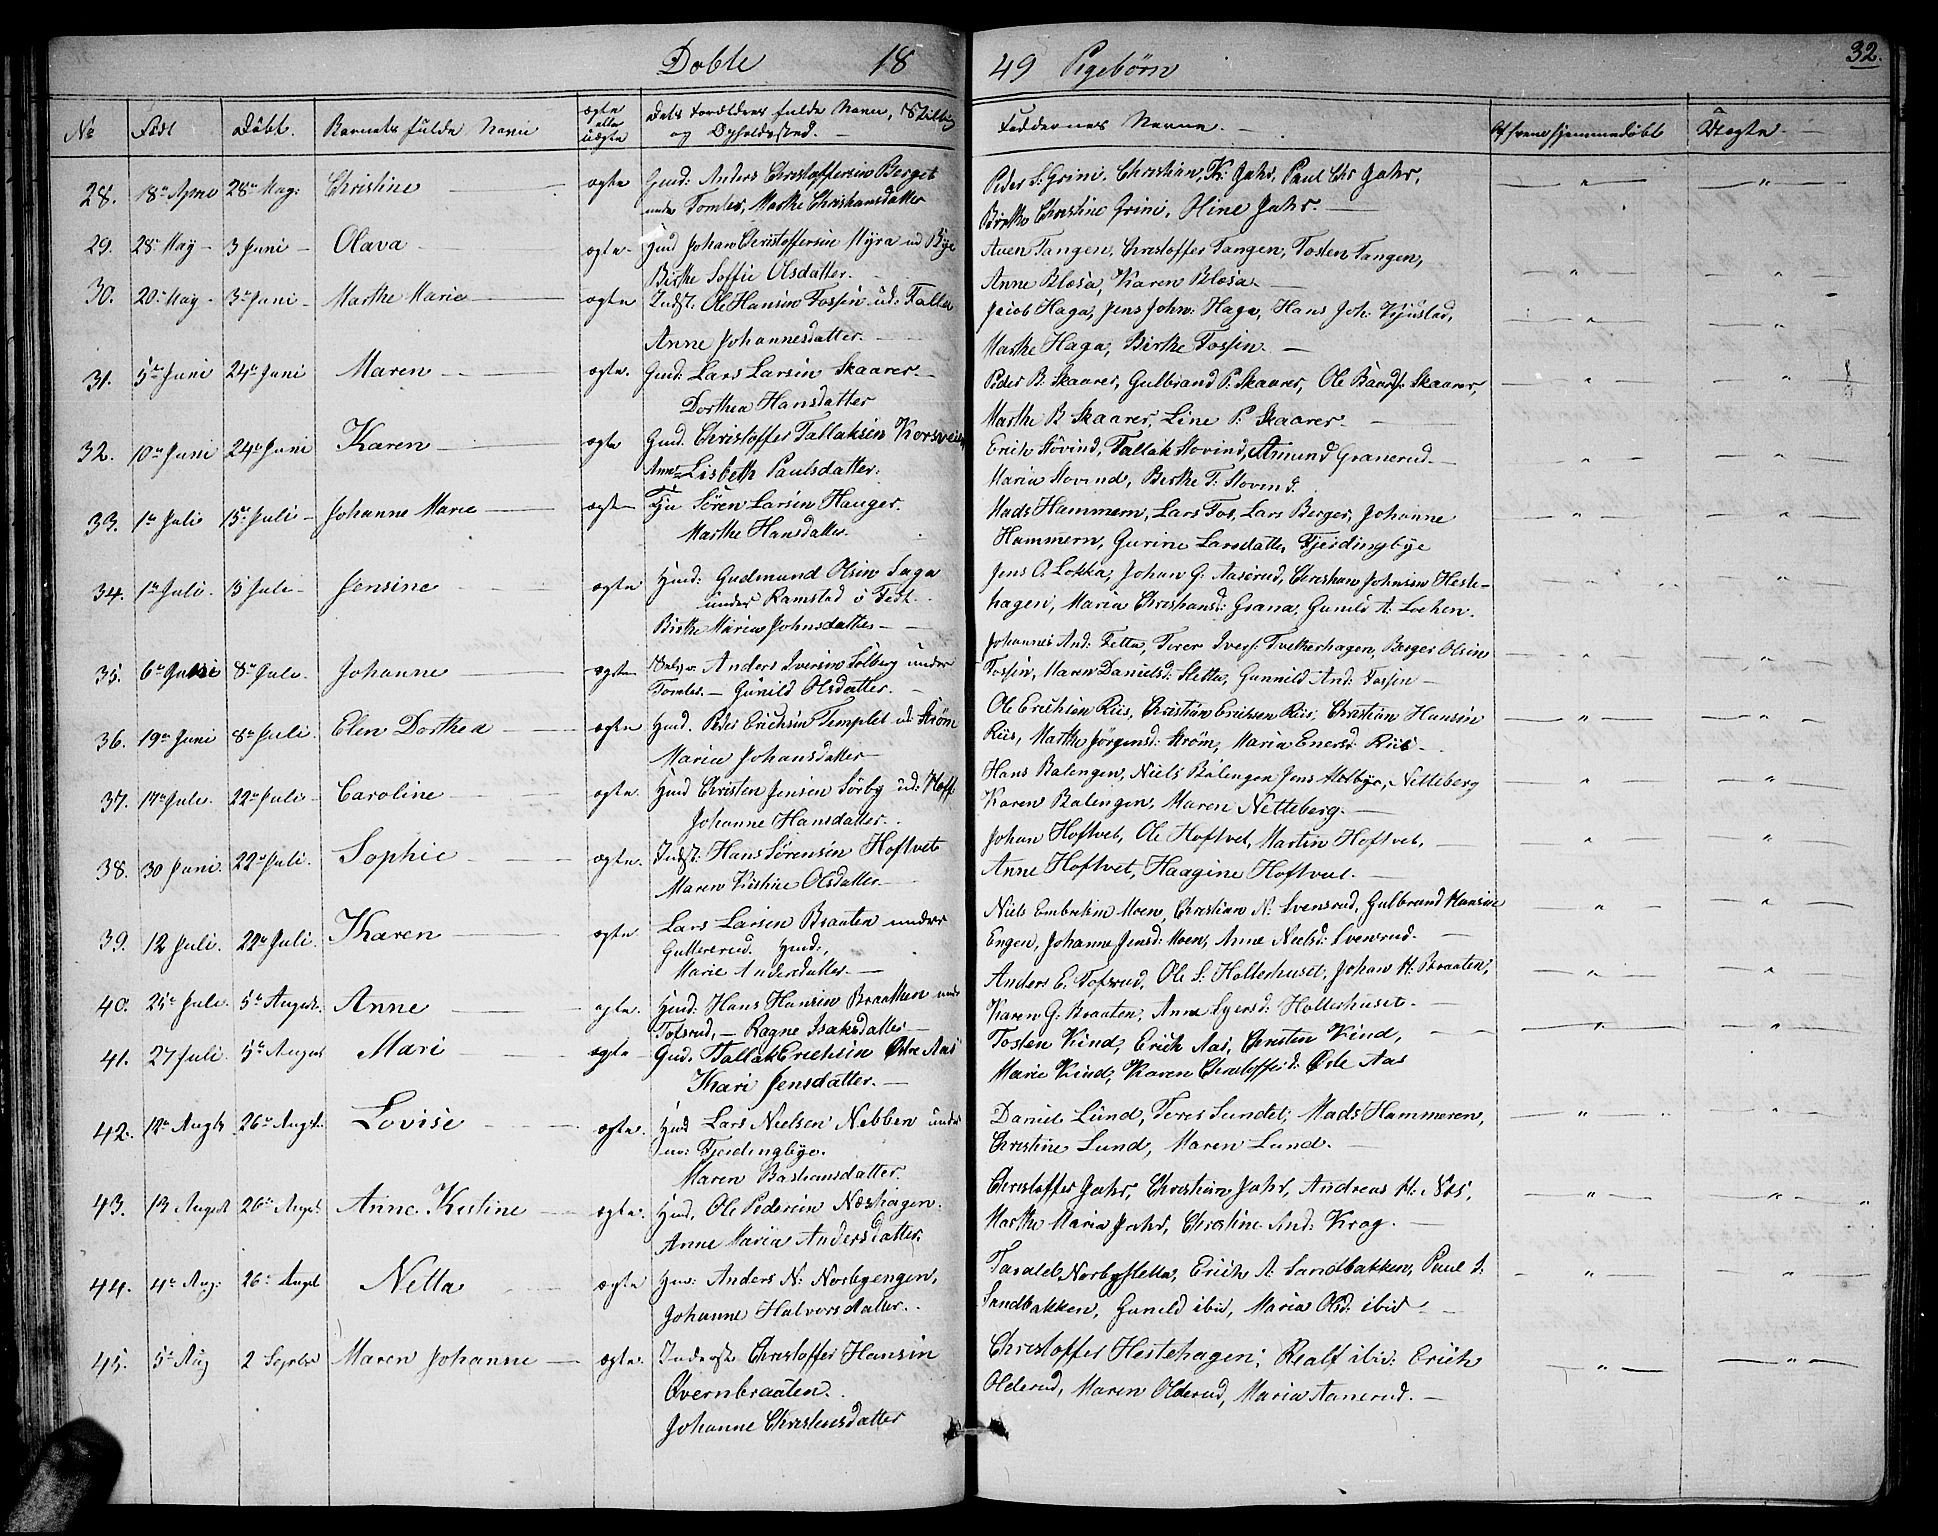 Döbte 18
49 Pigebörn
32.
No Födt Döbt. Barnets fulde Navn ægte eller uægte Dets Forældres fulde Navn, Stilling og Opholdssted.
Faddernes Navne.
28. 18de April 28de Maj: Christine ægte Gmd: Anders Christoffersen Berget
under Tomler, Marthe Christiansdatter
Peder S: Grini, Christian K: Jahr, Paul Chr Jahr,
Birthe Christine Grini, Oline Jahr.
29. 28 May 3 Juni Olava ægte Hmd Johan Christoffersen Myra ud Bye
Birthe Soffie Olsdatter.
Aven Tangen, Christoffer Tangen, Tosten Tangen,
Anne Blæsa, Karen Blæsa.
30. 20de May 3de Juni Marthe Marie ægte Indst: Ole Hansen Fossen ud: Falla
Anne Johannesdatter.
Jacob Haga, Jens John: Haga, Hans Joh: Kjustad,
Marthe Haga, Birthe Fossen.
31. 5te Juni 24de Juni Maren ægte. Gmd: Lars Larsen Skaarer
Dorthea Hansdatter
Peder B. Skaarer, Gulbrand P. Skaarer, Ole Baards: Skaarer,
Marthe B Skaarer, Line P. Skaarer.
32. 10de Juni 24de Juni Karen ægte Gmd. Christoffer Tallaksen Korsveien
Anne Lisbeth Paulsdatter.
Erich Hovind, Tallak Hovind, Amund Granerud
Maria Hovind, Birthe T: Hovind.
33. 1de Juli 15de Juli Johanne Marie ægte Tju Sören Larsen Hauger.
Marthe Hansdatter
Mads Hammern, Lars Fos, Lars Berger, Johanne
Hammern, Gurine Larsdatter, Fjerdingbye
34. 1de Juli 15 Juli Jensine ægte Hmd: Gudmund Olsen Saga
under Ramstad i Fedt.
Birthe Maria Johnsdatter
Jens O. Løkka, Johan G. Aaserud, Christian Johnsen Heste-
hagen, Maria Christiansd: Grana, Gunild A: Lochen.
35. 6te Juni 8de Juli Johanne ægte Anders Iversen Solberg under
Tomler. Gunild Olsdatter.
Johannes And: Fetta, Terer Ivers: Tvetterhagen, Berger Olsen
Fossen, Maren Danielsd: Sletta, Gunnild And: Fossen
36. 19de Juni 8de Juli Elen Dorthea ægte Hmd. Peder Erichsen Templet ud: Ström
Maria Johansdatter
Ole Erichsen Riis, Christian Erichsen Riis, Christian Hansen
Riis, Marthe Jörgensd: Ström, Maria Enersd: Riis
37. 17de Juli. 22de Juli Caroline ægte Hmd Christen Jensen Sörby ud: Hoff
Johanne Hansdatter.
Hans Balengen, Niels Balengen Jens Melbye, Netteberg
Karen Balengen, Maren Netteberg.
38. 30 Juni. 22de Juli. Sophie ægte. Indst: Hans Sörensen Hoftvet
Maren Kistine Olsdatter
Johan Hoftvet, Ole Hoftvet, Martin Hoftvet,
Anne Hoftvet, Haagine Hoftvet.
39. 12 Juli. 22de Juli. Karen ægte Lars Larsen Braaten under
Guttererud. Hmd:
Marie Andersdatter
Niels Embretsen Moen, Christian N: Svensrud, Gulbrand Hansen
Engen, Johanne Jensd: Moen, Anne Nielsd: Svensrud.
40. 25de Juli 5te August. Anne ægte. Hmd: Hans Hansen Braatten under
Tofsrud, Ragne Isaksdatter
Anders E: Tofsrud, Ole S. Holterhuset, Johan H. Braaten,
Karen G. Braaten, Anne Syersd: Holterhuset.
41. 27 Juli. 5te August Mari ægte Gmd: Tallak Erichsen Østre Aas
Kari Jensdatter.
Tosten Kind, Erich Aas, Christen Kind,
Marie Kind, Karen Christoffersd: Øste Aas
42. 12de Augst 26de Augst. Lovise ægte. Hmd Lars Nielsen Nebben under
Fjerdingbye.
Maren Bastiansdatter.
Daniel Lund, Terer Sundet, Mads Hammeren,
Christine Lund, Maren Lund.
43. 13 August 26de August Anne Kistine ægte. Hmd. Ole Pedersen Næshagen.
Anne Maria Andersdatter.
Christoffer Jahr, Christian Jahr, Andreas H: Næs,
Marthe Maria Jahr, Christine And: Krag.
44. 4de Aug: 26de Augst Netta ægte Hmd: Anders N: Norbyengen,
Johanne Halvorsdatter.
Taraldt Norbysletta, Erich A. Sandbakken, Paul S:
Sandbakken, Gunild ibid, Maria Olsd. ibid
45. 5te Aug 2 Septbr Maren Johanne ægte. Inderst Christoffer Hansen
Qvernbraaten.
Johanne Christensdatter
Christoffer Hestehagen, Realf ibid: Erich
Olderud, Maren Olderud, Maria Aanerud.